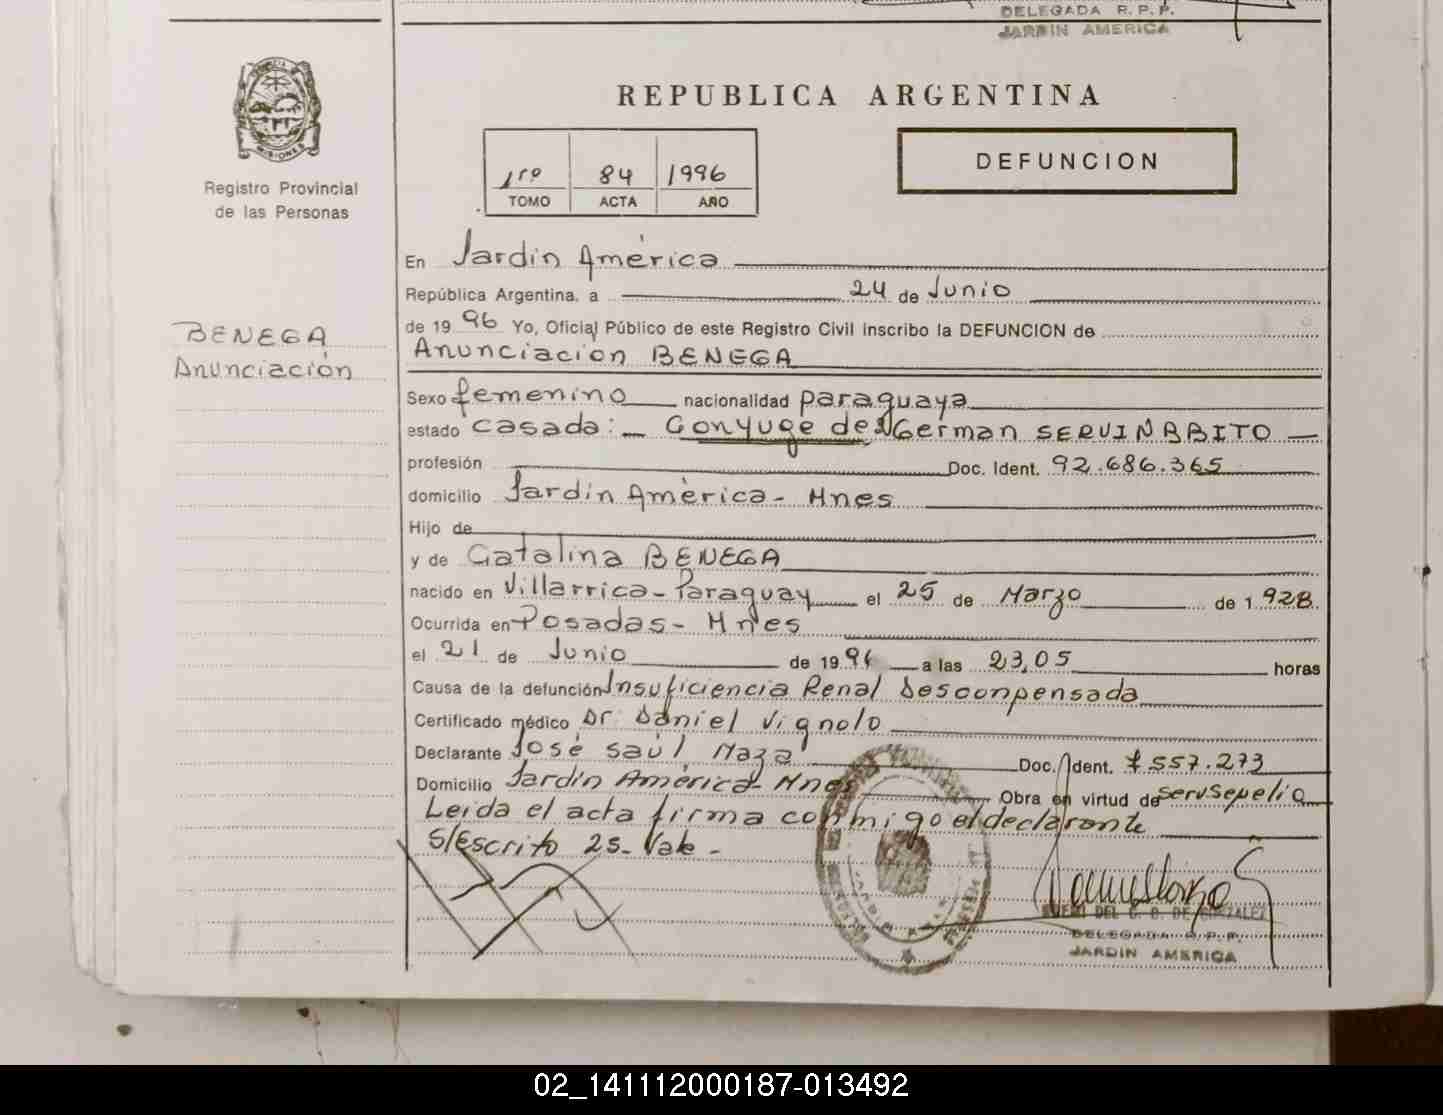 DELEGADA R.P.P.
JARDIN AMERICA
MISIONES
Registro Provincial
de las Personas
REPUBLICA ARGENTINA
1ro 84 1996
TOMO ACTA AÑO
DEFUNCION
BENEGA
Anunciación
En Jardín América
República Argentina, a 24 de Junio
de 1996 Yo, Oficial Público de este Registro Civil inscribo la DEFUNCION de
Anunciación BENEGA
Sexo femenino nacionalidad paraguaya
estado casada: Conyuge de German
profesión Doc. Ident. 92.686.365
domicilio Jardín América - Mnes
Hijo de
y de Catalina BENEGA
nacido en Villarrica - Paraguay el 25 de Marzo de 1.928
Ocurrida en Posadas - Mnes
el 21 de Junio de 1996 a las 23,05 horas
Causa de la defunción Insuficiencia Renal Desconpensada
Certificado médico Dr. Daniel Vignolo
Declarante José Saúl Maza Doc. Ident. 7.557.273
Domicilio Jardín América - Mnes Obra en virtud de servsepelio
Leida el acta firma conmigo el declarante
S/Escrito 25- Vale -
DEL C. B. DE GONZALEZ
DELEGADA R.P.P.
JARDIN AMERICA
02_141112000187-013492